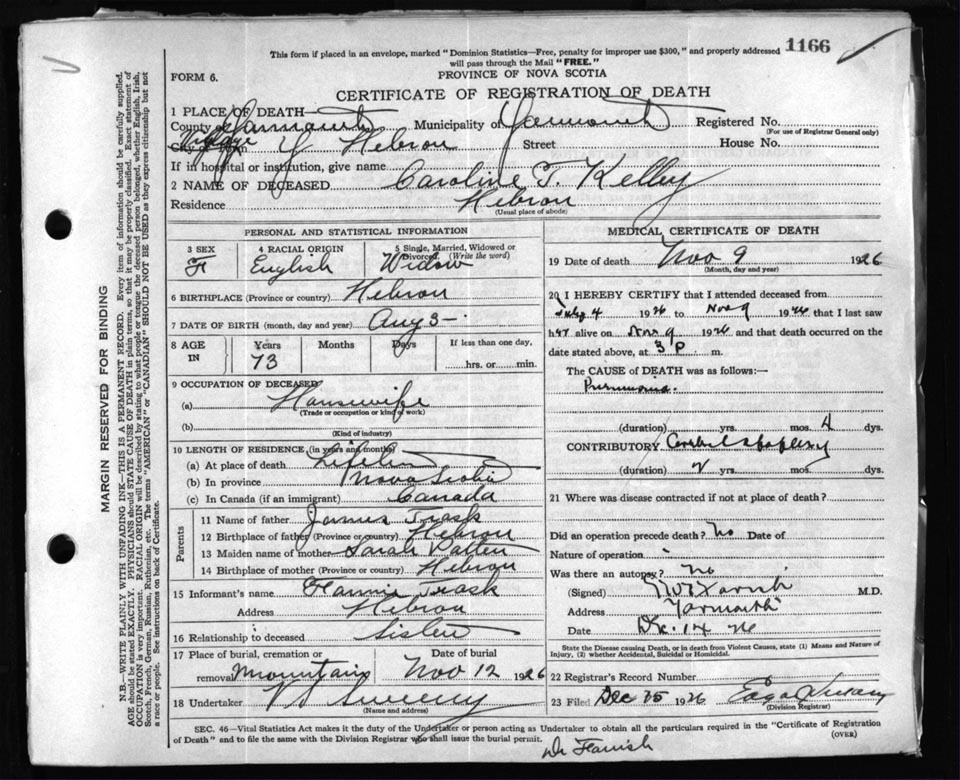 This form if placed in an envelope, marked "Dominion Statistics—Free, penalty for improper use $300," and properly addressed 1166
will pass through the Mail "FREE."
FORM 6.
PROVINCE OF NOVA SCOTIA
CERTIFICATE OF REGISTRATION OF DEATH
1 PLACE OF DEATH
County of Yarmouth Municipality of Yarmouth Registered No.
(For use of Registrar General only)
Village of Hebron Street House No.
If in hospital or institution, give name
2 NAME OF DECEASED Caroline T. Kelley
Residence Hebron
(Usual place of abode)
PERSONAL AND STATISTICAL INFORMATION
3 SEX 4 RACIAL ORIGIN 5 Single, Married, Widowed or Divorced. (Write the word)
F English Widow
6 BIRTHPLACE (Province or country) Hebron
7 DATE OF BIRTH (month, day and year) Aug 3—
8 AGE IN Years Months Days If less than one day,
73 hrs. or min.
9 OCCUPATION OF DECEASED
(a) Housewife
(Trade or occupation or kind of work)
(b)
(Kind of industry)
10 LENGTH OF RESIDENCE (in years and months)
(a) At place of death Lifetime
(b) In province Nova Scotia
(c) In Canada (if an immigrant) Canada
Parents
11 Name of father James Trask
12 Birthplace of father (Province or country) Hebron
13 Maiden name of mother Sarah Patten
14 Birthplace of mother (Province or country) Hebron
15 Informant's name Fannie Trask
Address Hebron
16 Relationship to deceased Sister
17 Place of burial, cremation or removal Date of burial
Mountain Nov 12 1926
18 Undertaker V S Sweeny
(Name and address)
MEDICAL CERTIFICATE OF DEATH
19 Date of death Nov 9 1926
(Month, day and year)
20 I HEREBY CERTIFY that I attended deceased from
4 1926 to Nov 9 1926 that I last saw
her alive on Nov 9 1926 and that death occurred on the
date stated above, at 3 P m.
The CAUSE of DEATH was as follows:—
Pneumonia.
(duration) yrs. mos. 4 dys.
CONTRIBUTORY Cerebral apoplexy
(duration) 2 yrs. mos. dys.
21 Where was disease contracted if not at place of death?
Did an operation precede death? No Date of
Nature of operation
Was there an autopsy? No
(Signed) M.D.
Address Yarmouth
Date Dec. 14 26
State the Disease causing Death, or in death from Violent Causes, state (1) Means and Nature of
Injury, (2) whether Accidental, Suicidal or Homicidal.
22 Registrar's Record Number
23 Filed Dec 1926
(Division Registrar)
SEC. 46—Vital Statistics Act makes it the duty of the Undertaker or person acting as Undertaker to obtain all the particulars required in the "Certificate of Registration
of Death" and to file the same with the Division Registrar who shall issue the burial permit. (OVER)
Dr
MARGIN RESERVED FOR BINDING
N.B.—WRITE PLAINLY WITH UNFADING INK—THIS IS A PERMANENT RECORD. Every item of information should be carefully supplied.
AGE should be stated EXACTLY. PHYSICIANS should STATE CAUSE OF DEATH in plain terms, so that it may be properly classified. Exact statement of
OCCUPATION is very important. RACIAL ORIGIN will be described by stating to what people or tongue the deceased person belonged, whether English, Irish,
Scotch, French, German, Russian, Ruthenian, etc. The terms "AMERICAN" or "CANADIAN" SHOULD NOT BE USED as they express citizenship but not
a race or people. See instructions on back of Certificate.